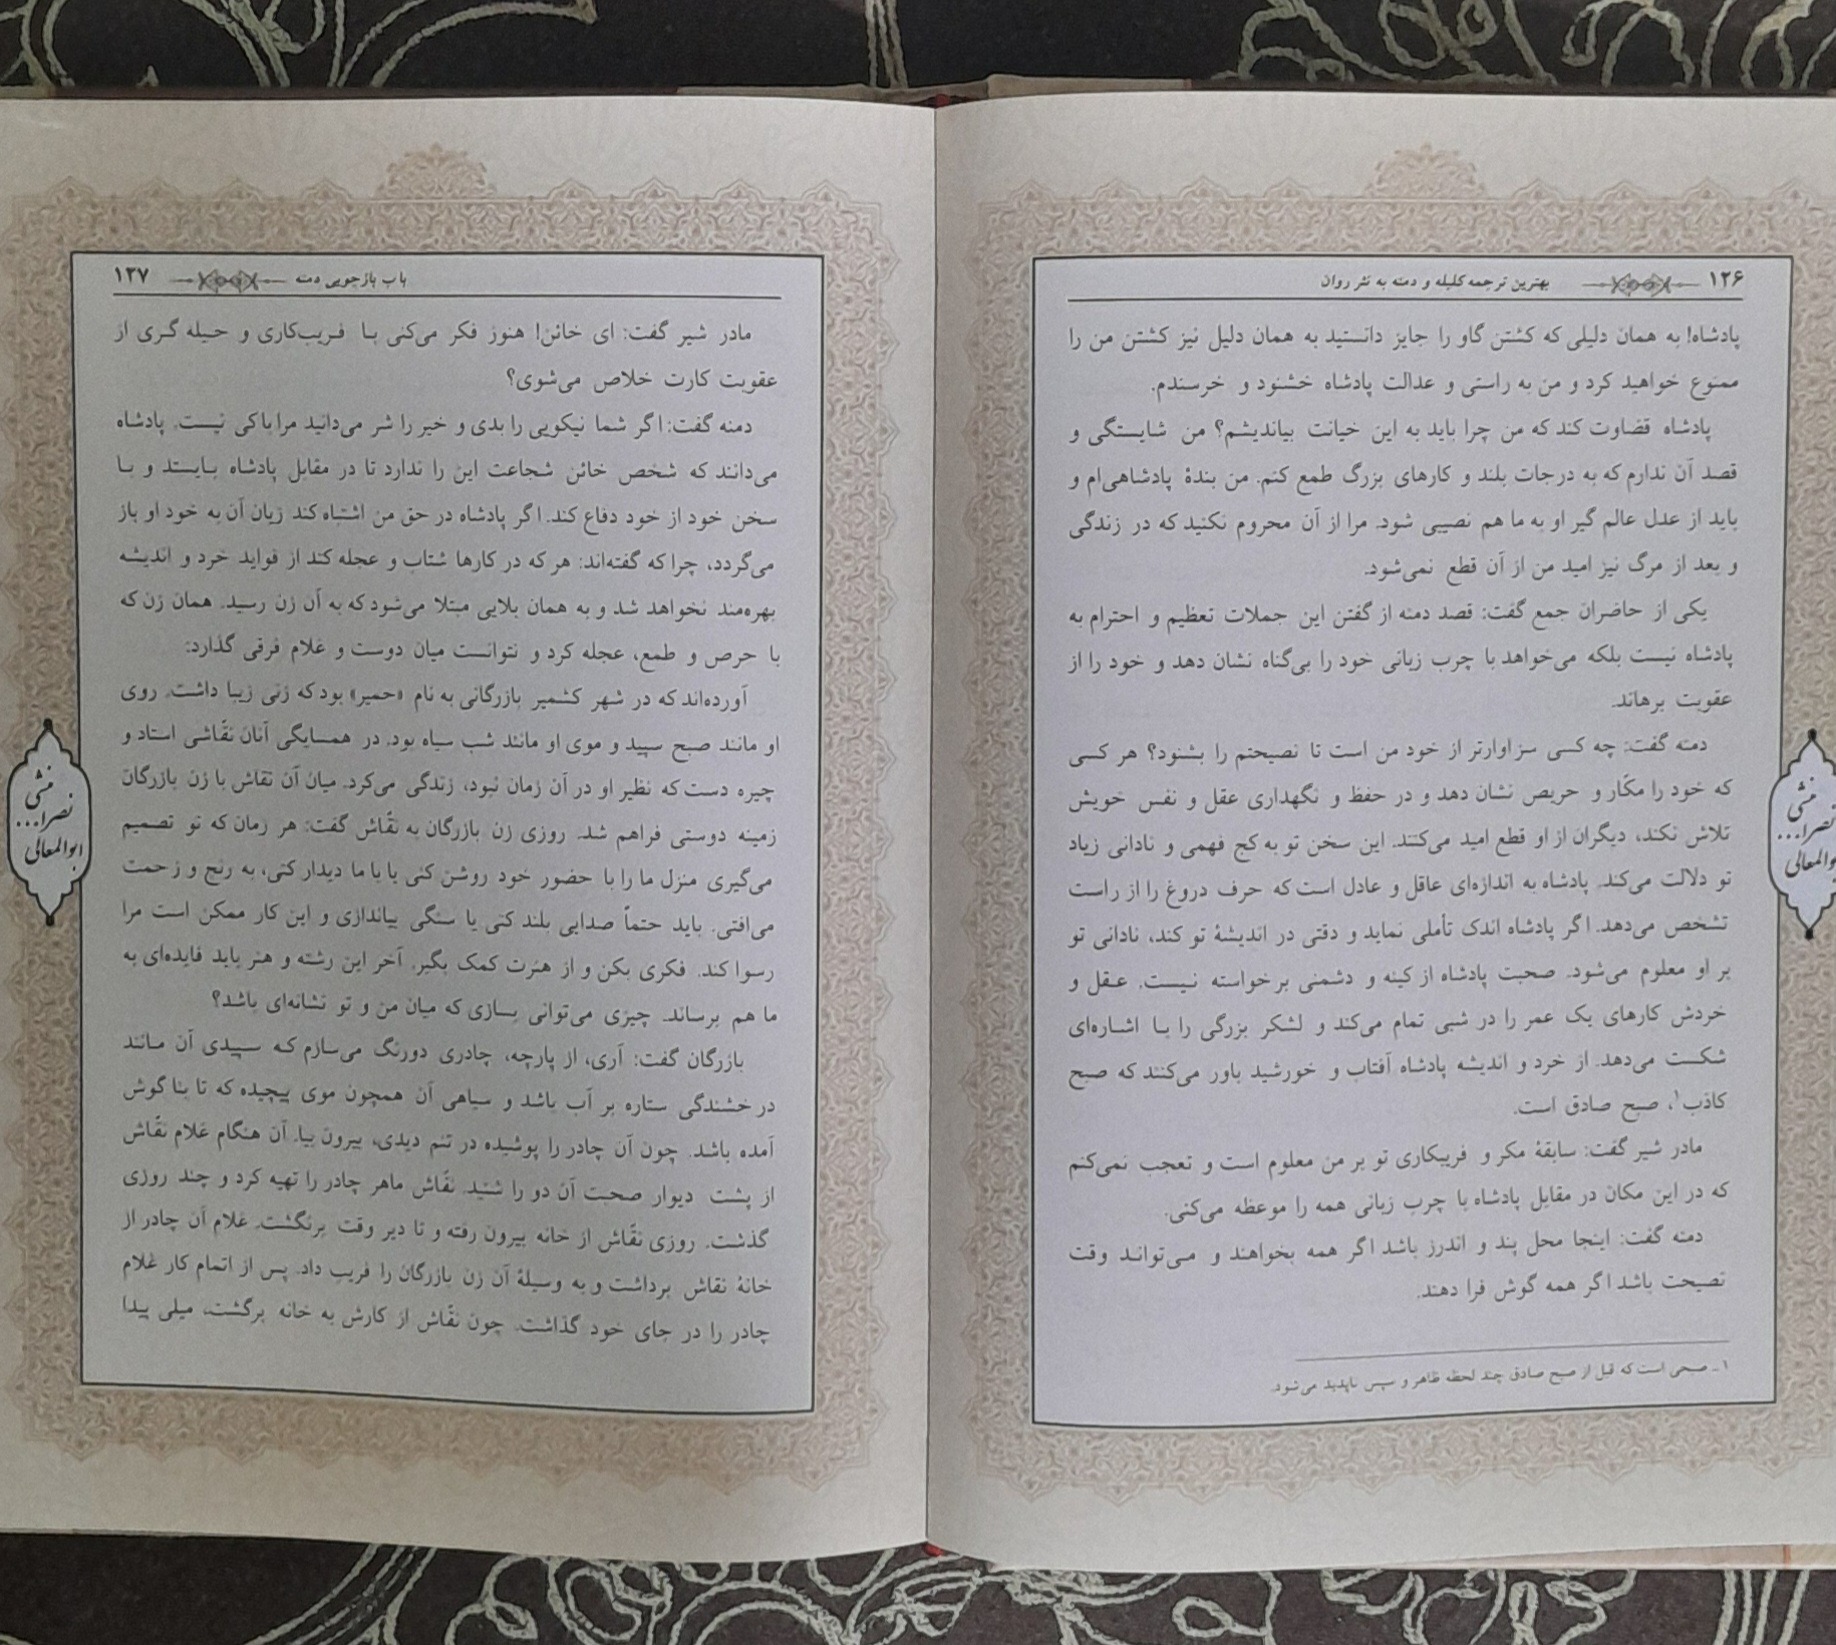 ۱۲۶ بهترین ترجمه کلیله و دمنه به نثر روان
پادشاه! به همان دلیلی که کشتن گاو را جایز دانستید به همان دلیل نیز کشتن من را
ممنوع خواهید کرد و من به راستی و عدالت پادشاه خشنود و خرسندم.
پادشاه قضاوت کند که من چرا باید به این خیانت بیاندیشم؟ من شایستگی و
قصد آن ندارم که به درجات بلند و کارهای بزرگ طمع کنم. من بندهٔ پادشاهی‌ام و
باید از عدل عالم گیر او به ما هم نصیبی شود. مرا از آن محروم نکنید که در زندگی
و بعد از مرگ نیز امید من از آن قطع نمی‌شود.
یکی از حاضران جمع گفت: قصد دمنه از گفتن این جملات تعظیم و احترام به
پادشاه نیست بلکه می‌خواهد با چرب زبانی خود را بی‌گناه نشان دهد و خود را از
عقوبت برهاند.
دمنه گفت: چه کسی سزاوارتر از خود من است تا نصیحتم را بشنود؟ هر کسی
که خود را مکّار و حریص نشان دهد و در حفظ و نگهداری عقل و نفس خویش
تلاش نکند، دیگران از او قطع امید می‌کنند. این سخن تو به کج فهمی و نادانی زیاد
تو دلالت می‌کند. پادشاه به اندازه‌ای عاقل و عادل است که حرف دروغ را از راست
تشخص می‌دهد. اگر پادشاه اندک تأملی نماید و دقتی در اندیشهٔ تو کند، نادانی تو
بر او معلوم می‌شود. صحبت پادشاه از کینه و دشمنی برخواسته نیست. عقل و
خردش کارهای یک عمر را در شبی تمام می‌کند و لشکر بزرگی را با اشاره‌ای
شکست می‌دهد. از خرد و اندیشه پادشاه آفتاب و خورشید باور می‌کنند که صبح
کاذب۱، صبح صادق است.
مادر شیر گفت: سابقهٔ مکر و فریبکاری تو بر من معلوم است و تعجب نمی‌کنم
که در این مکان در مقابل پادشاه با چرب زبانی همه را موعظه می‌کنی.
دمنه گفت: اینجا محل پند و اندرز باشد اگر همه بخواهند و می‌تواند وقت
نصیحت باشد اگر همه گوش فرا دهند.
۱ـ صبحی است که قبل از صبح صادق چند لحظه ظاهر و سپس ناپدید می‌شود.
منشی
نصرا...
ابوالمعالی
باب بازجویی دمنه ۱۲۷
مادر شیر گفت: ای خائن! هنوز فکر می‌کنی با فریب‌کاری و حیله گری از
عقوبت کارت خلاص می‌شوی؟
دمنه گفت: اگر شما نیکویی را بدی و خیر را شر می‌دانید مرا باکی نیست. پادشاه
می‌دانند که شخص خائن شجاعت این را ندارد تا در مقابل پادشاه بایستد و با
سخن خود از خود دفاع کند. اگر پادشاه در حق من اشتباه کند زیان آن به خود او باز
می‌گردد، چرا که گفته‌اند: هر که در کارها شتاب و عجله کند از فواید خرد و اندیشه
بهره‌مند نخواهد شد و به همان بلایی مبتلا می‌شود که به آن زن رسید. همان زن که
با حرص و طمع، عجله کرد و نتوانست میان دوست و غلام فرقی گذارد:
آورده‌اند که در شهر کشمیر بازرگانی به نام «حمیر» بود که زنی زیبا داشت. روی
او مانند صبح سپید و موی او مانند شب سیاه بود. در همسایگی آنان نقّاشی استاد و
چیره دست که نظیر او در آن زمان نبود، زندگی می‌کرد. میان آن نقاش با زن بازرگان
زمینه دوستی فراهم شد. روزی زن بازرگان به نقّاش گفت: هر زمان که تو تصمیم
می‌گیری منزل ما را با حضور خود روشن کنی یا با ما دیدار کنی، به رنج و زحمت
می‌افتی. باید حتماً صدایی بلند کنی یا سنگی بیاندازی و این کار ممکن است مرا
رسوا کند. فکری بکن و از هنرت کمک بگیر. آخر این رشته و هنر باید فایده‌ای به
ما هم برساند. چیزی می‌توانی بسازی که میان من و تو نشانه‌ای باشد؟
بازرگان گفت: آری، از پارچه، چادری دورنگ می‌سازم که سپیدی آن مانند
درخشندگی ستاره بر آب باشد و سیاهی آن همچون موی پیچیده که تا بناگوش
آمده باشد. چون آن چادر را پوشیده در تنم دیدی، بیرون بیا. آن هنگام غلام نقّاش
از پشت دیوار صحبت آن دو را شنید. نقّاش ماهر چادر را تهیه کرد و چند روزی
گذشت. روزی نقّاش از خانه بیرون رفته و تا دیر وقت برنگشت. غلام آن چادر از
خانهٔ نقاش برداشت و به وسیلهٔ آن زن بازرگان را فریب داد. پس از اتمام کار غلام
چادر را در جای خود گذاشت. چون نقّاش از کارش به خانه برگشت، میلی پیدا
منشی
نصرا...
ابوالمعالی